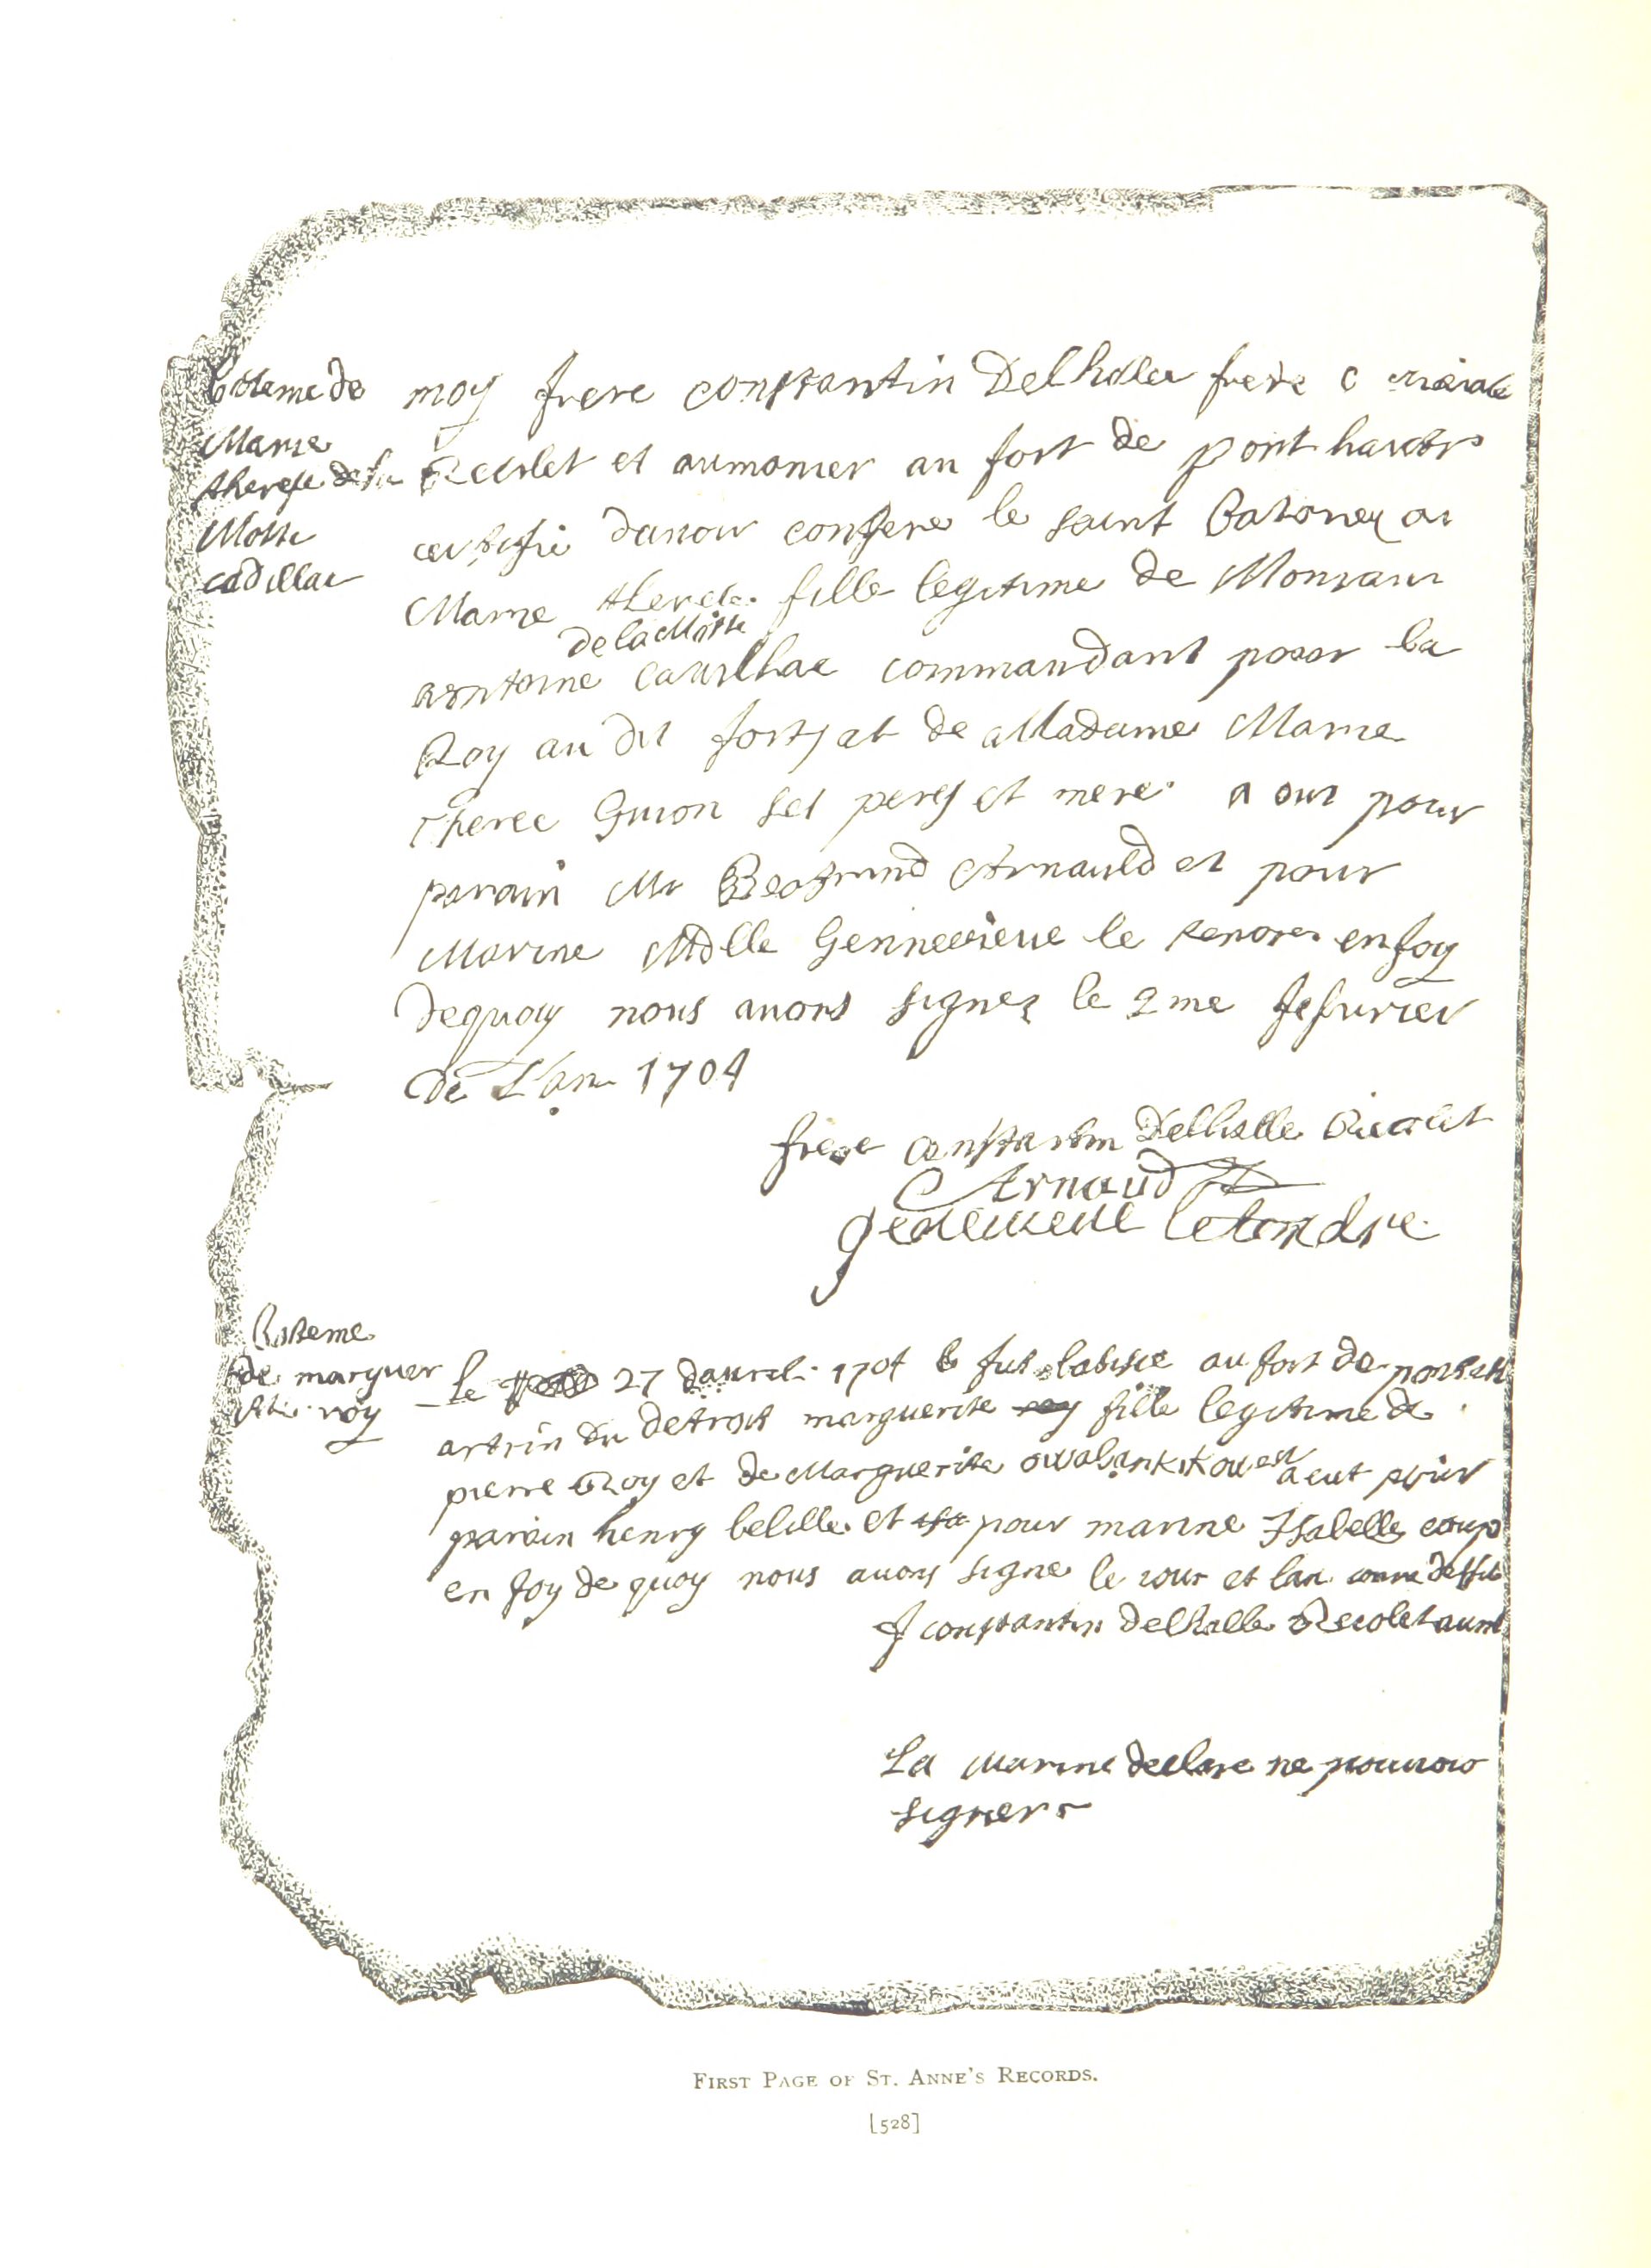 batteme de
Marie
therese de la
Motte
cadillac
moy frere constantin Delhalle frere
Recolet et aumonier au fort de pont
certifie davoir confere le saint
Marie therese fille legitime de Monsieur
de la Motte
antoine Cadillac commandant pour la
Roy au dit fort et de Madame Marie
therec Guion ses peres et mere a our pour
parain Mr Bertrand Arnauld et pour
Marine Mdlle Gennevieve le en foy
de quoy nous avons signez le 2me fefurier
De L'an 1704
frere constantin Delhalle Recolet
C Arnaud
genevieve letendre
Bateme
de marguer
roy
Le 27 davril 1704 fut au fort de
artrin du detroit marguerite fille legitime de
pierre Roy et de Marguerite a eut pour
parain henry belille et pour marine Isabelle coup
en foy de quoy nous avons signe le iour et lan
f constantin delhalle Recolet aum
La marine declare ne pouvoir
signer
FIRST PAGE OF ST. ANNE'S RECORDS.
[528]